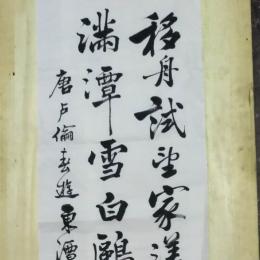 移舟試望家漾
滿潭雪白鷗
唐卢倫春遊東潭